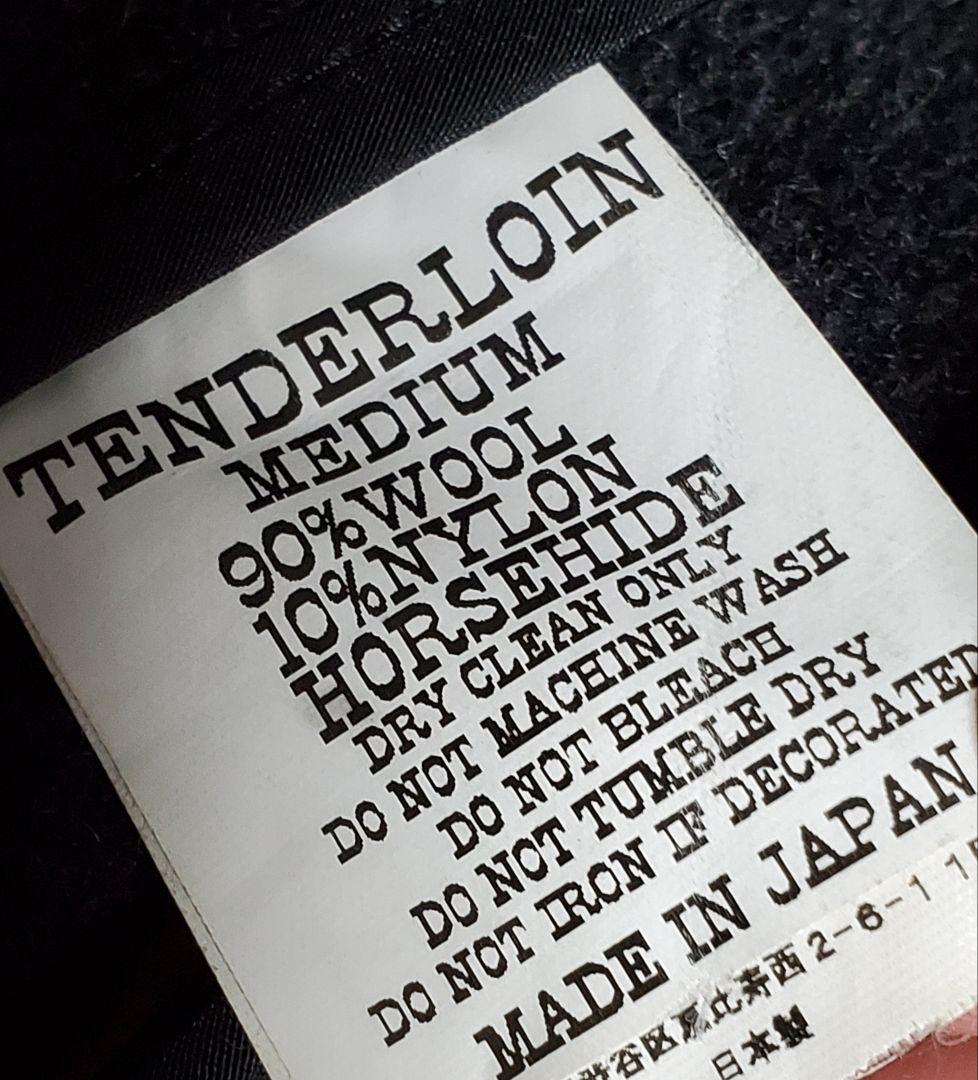 TENDERLOIN
MEDIUM
90%WOOL
10%NYLON
HORSEHIDE
DRY CLEAN ONLY
DO NOT MACHINE WASH
DO NOT BLEACH
DO NOT TUMBLE DRY
DO NOT IRON IF DECORATED
MADE IN JAPAN
渋谷区恵比寿西2-6-1
日本製